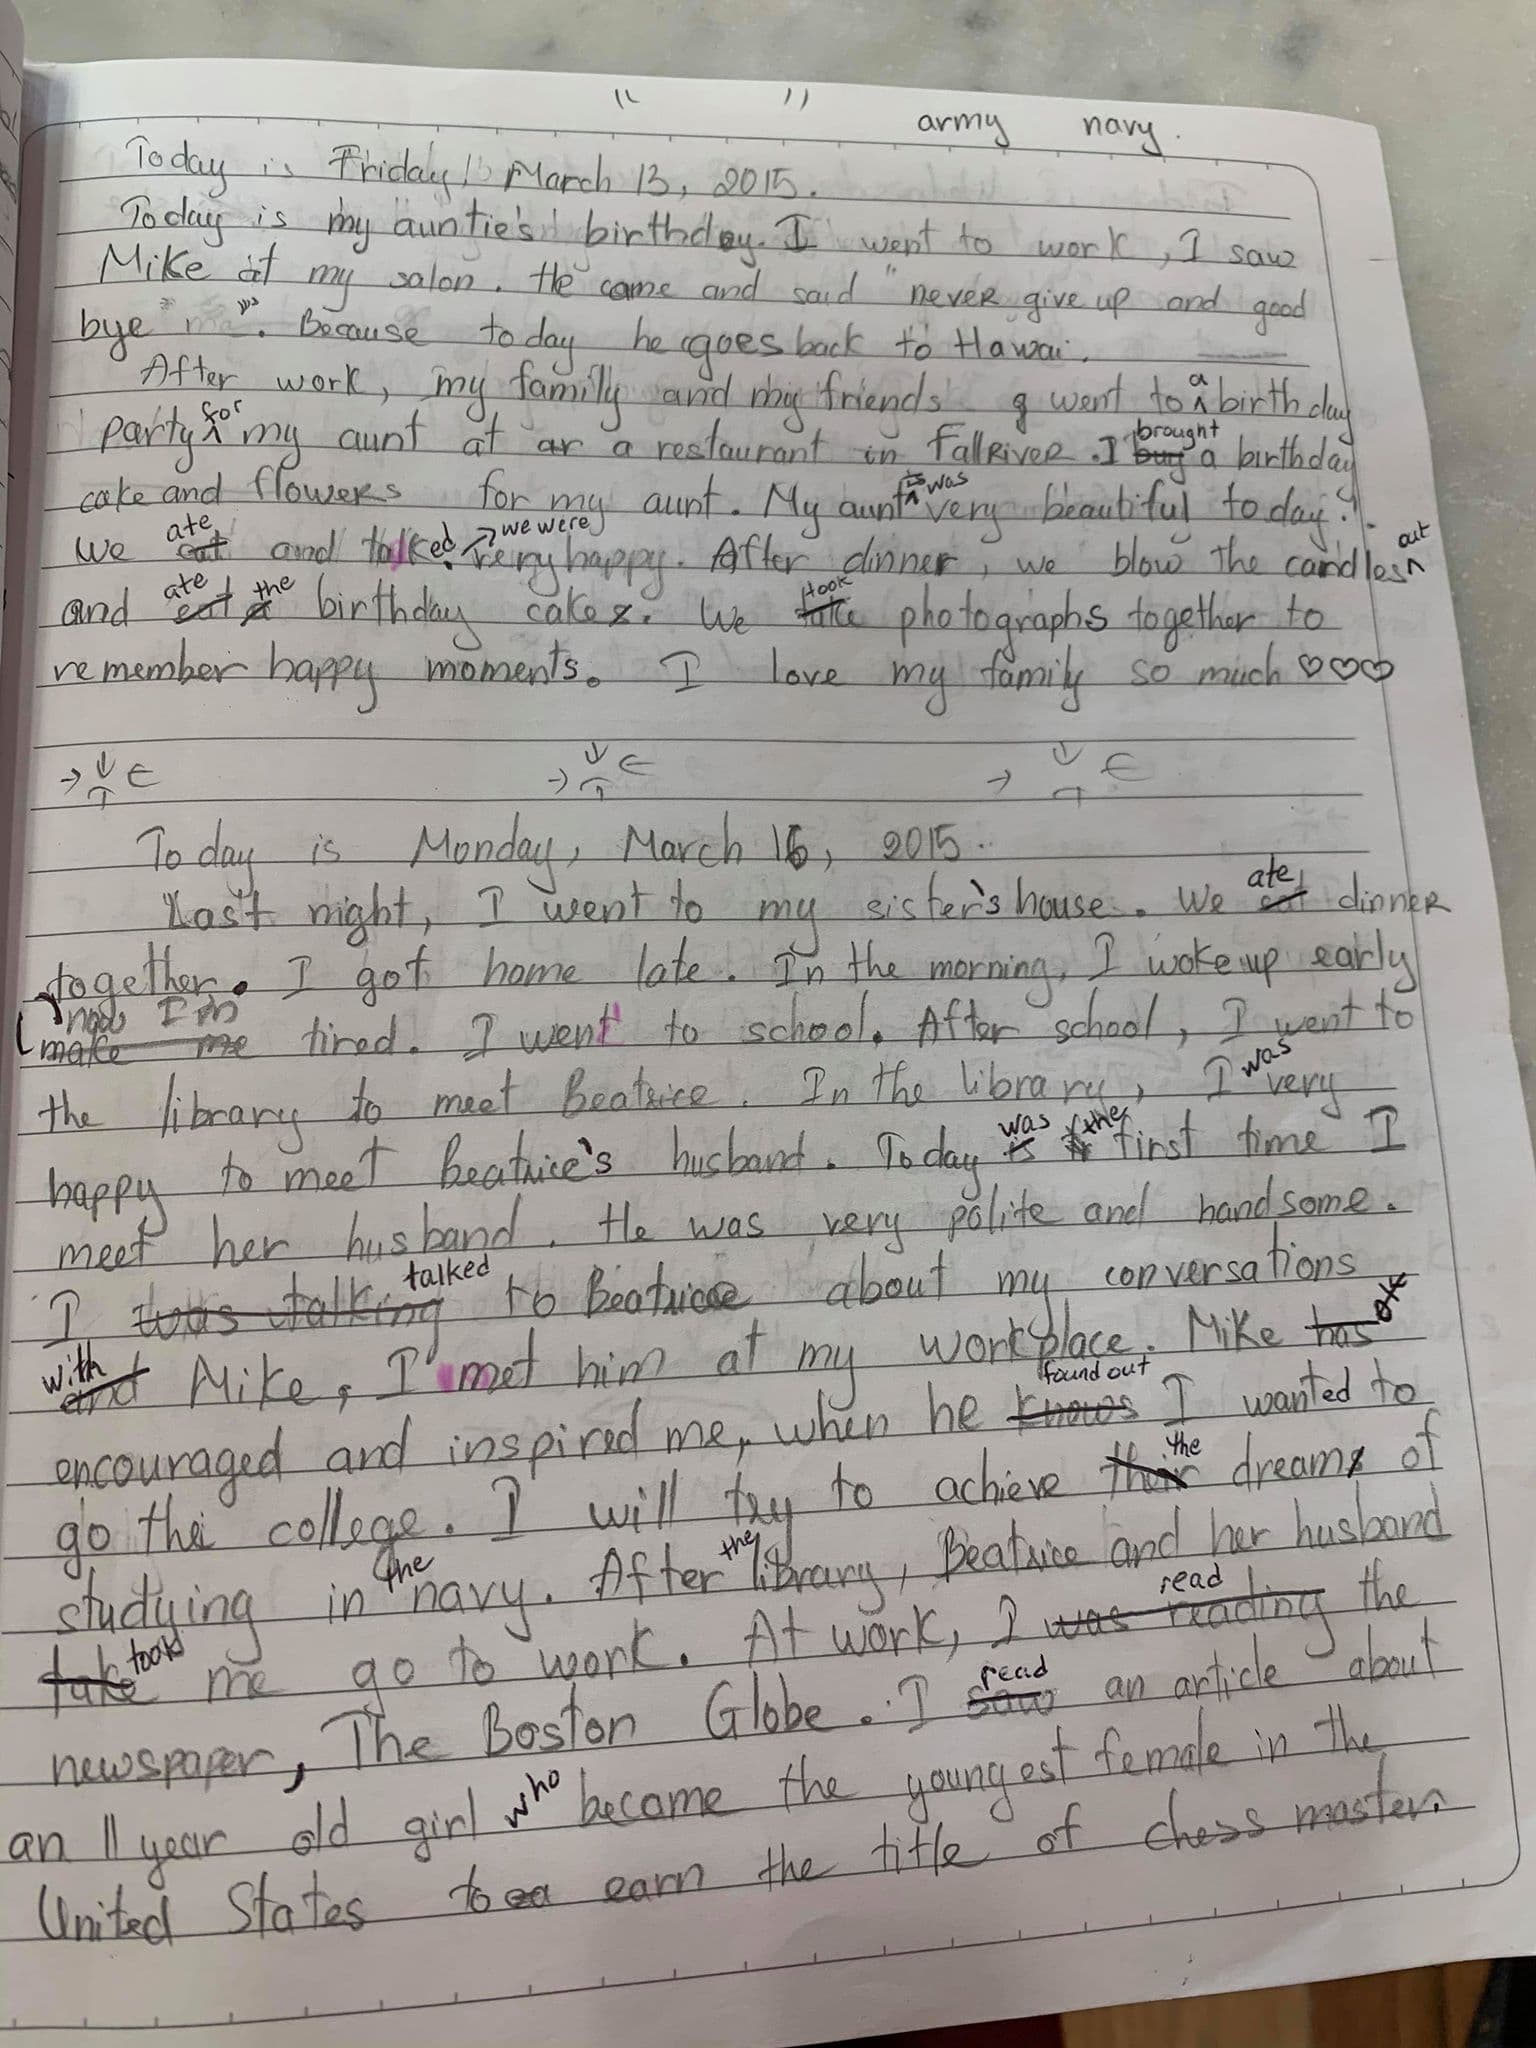 “ ” army navy.
Today is Friday, March 13, 2015.
Today is my auntie's birthday. I went to work, I saw
Mike at my salon. He came and said "never give up and good
bye". Because today he goes back to Hawai.
After work, my family and my friends went to a birthday
party for my aunt at ar a restaurant in FallRiver. I buy brought a birthday
cake and flowers for my aunt. My aunt is was very beautiful today.
We eat ate and talked. we were very happy. After dinner, we blow the candles out
and eat ate a the birthday cakes. We take took photographs together to
remember happy moments. I love my family so much ♡♡♡
Today is Monday, March 16, 2015.
Last night, I went to my sister's house. We eat ate dinner
together. I got home late. In the morning, I woke up early
make me now I'm tired. I went to school. After school, I went to
the library to meet Beatrice. In the library, I was very
happy to meet Beatrice's husband. Today is was the first time I
meet her husband. He was very polite and handsome.
I was talking talked to Beatrice about my conversations
and with Mike, I met him at my workplace. Mike has
encouraged and inspired me, when he knows found out I wanted to
go the college. I will try to achieve their the dreams of
studying in the navy. After the library, Beatrice and her husband
take took me go to work. At work, I was reading read the
newspaper, The Boston Globe. I saw read an article about
an 11 year old girl who became the youngest female in the
United States to ea earn the title of chess master.